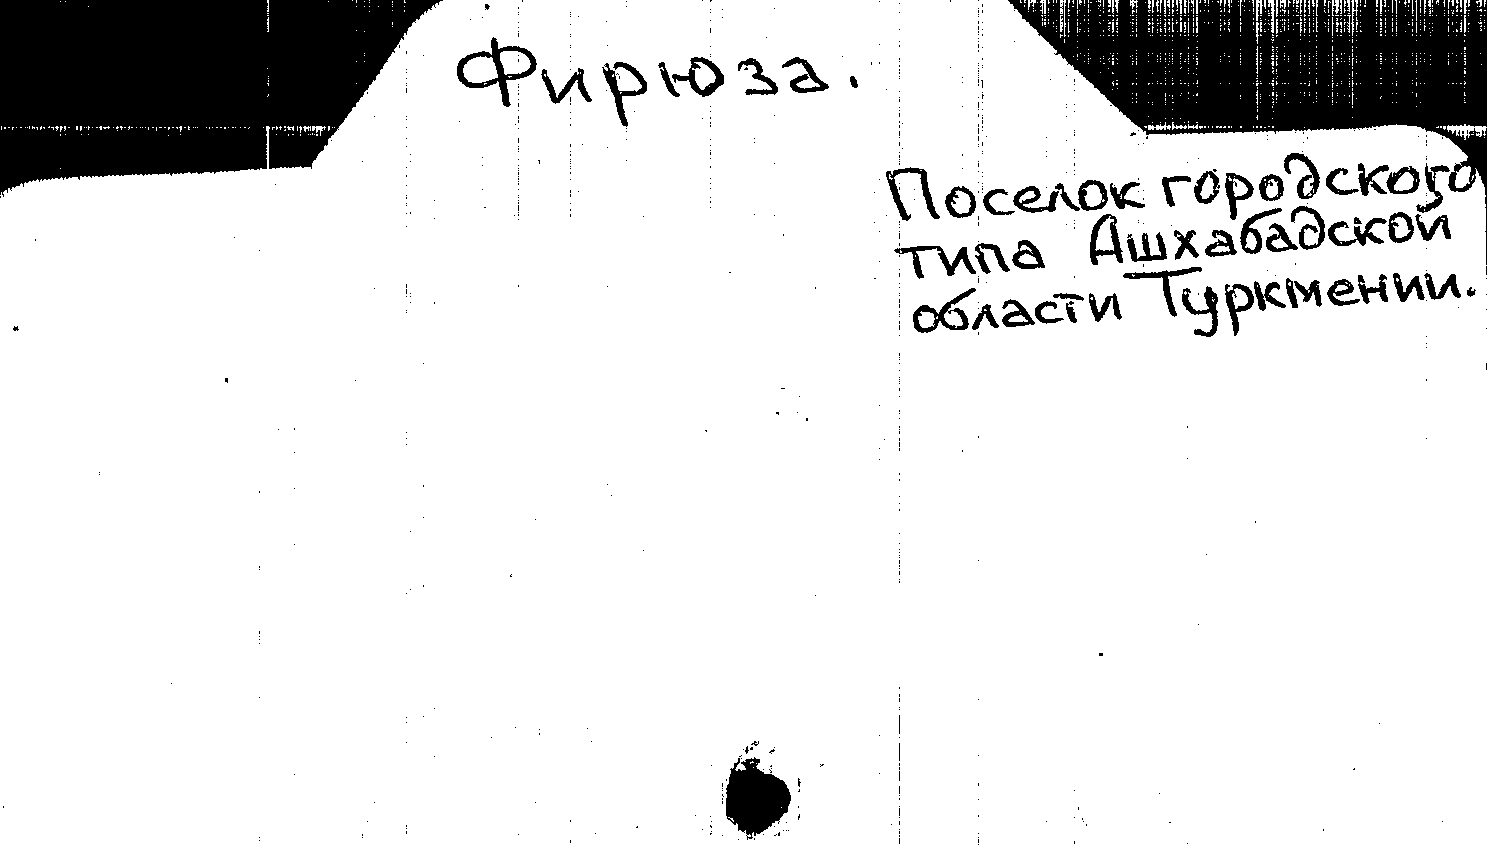 Фирюза.
Поселок городского
типа Ашхабадской
области Туркмении.